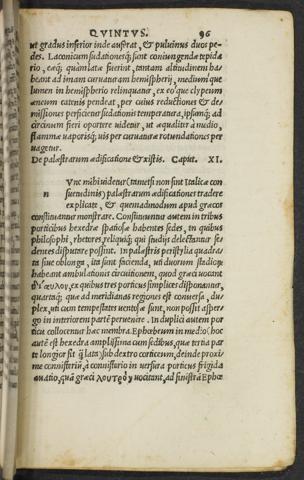 QVINTVS. 96
ut gradus inferior inde auferat, & puluinus duos pe-
des. Laconicum sudationesq́; sunt coniungendæ tepida
rio, eæq́; quàm latæ fuerint, tantam altitudinem ha-
beant ad imam curuaturam hemispherij, mediumq́ue
lumen in hemisperio relinquatur, ex eo q́ue clypeum
æneum catenis pendeat, per cuius reductiones & de-
missiones perficietur sudationis temperatura, ipsumq́; ad
circinum fieri oportere uidetur, ut æqualiter à medio,
flammæ uaporisq́; uis per curuaturæ rotundationes per
uagetur.
De palæstrarum ædificatione & xistis. Caput. XI.
Vnc mihi uidetur (tametsi non sint Italicæ con
n suetudinis) palæstrarum ædificationes tradere
explicatè, & quemadmodum apud græcos
constituantur monstrare. Constituuntur autem in tribus
porticibus hexedræ spatiosæ habentes sedes, in quibus
philosophi, rhetores, reliquiq́; qui studijs delectantur se-
dentes disputare possint. In palæstris peristylia quadra-
ta siue oblonga, ita sunt facienda, uti duorum stadiorū
habeant ambulationis circuitionem, quod græci uocant
δίαυλον, ex quibus tres porticus simplices disponantur,
quartaq́; quæ ad meridianas regiones est conuersa, du-
plex, uti cum tempestates uentosæ sunt, non possit asper-
go in interiorem partē peruenire. In duplici autem por
ticu collocentur hæc membra. Ephœbeum in medio (hoc
autē est hexedra amplissima cum sedibus, quæ tertia par
te longior sit q̄ lata) sub dextro coriceum, deinde proxi
mè conisteriū, à conisterio in uersura porticus frigida
lauatio, quā græci λουτρὸν uocitant, ad sinistrā Ephœ